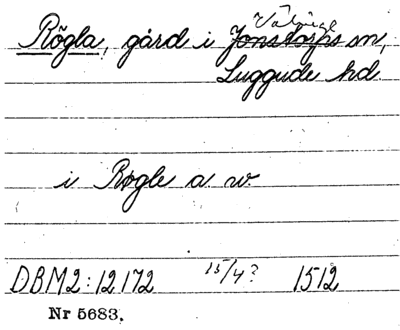 Rögla, gård i Jonstorps sn,
Luggude hd.
i Røgle a. w.
DBM2:12172 15/4? 1512
Nr 5683.